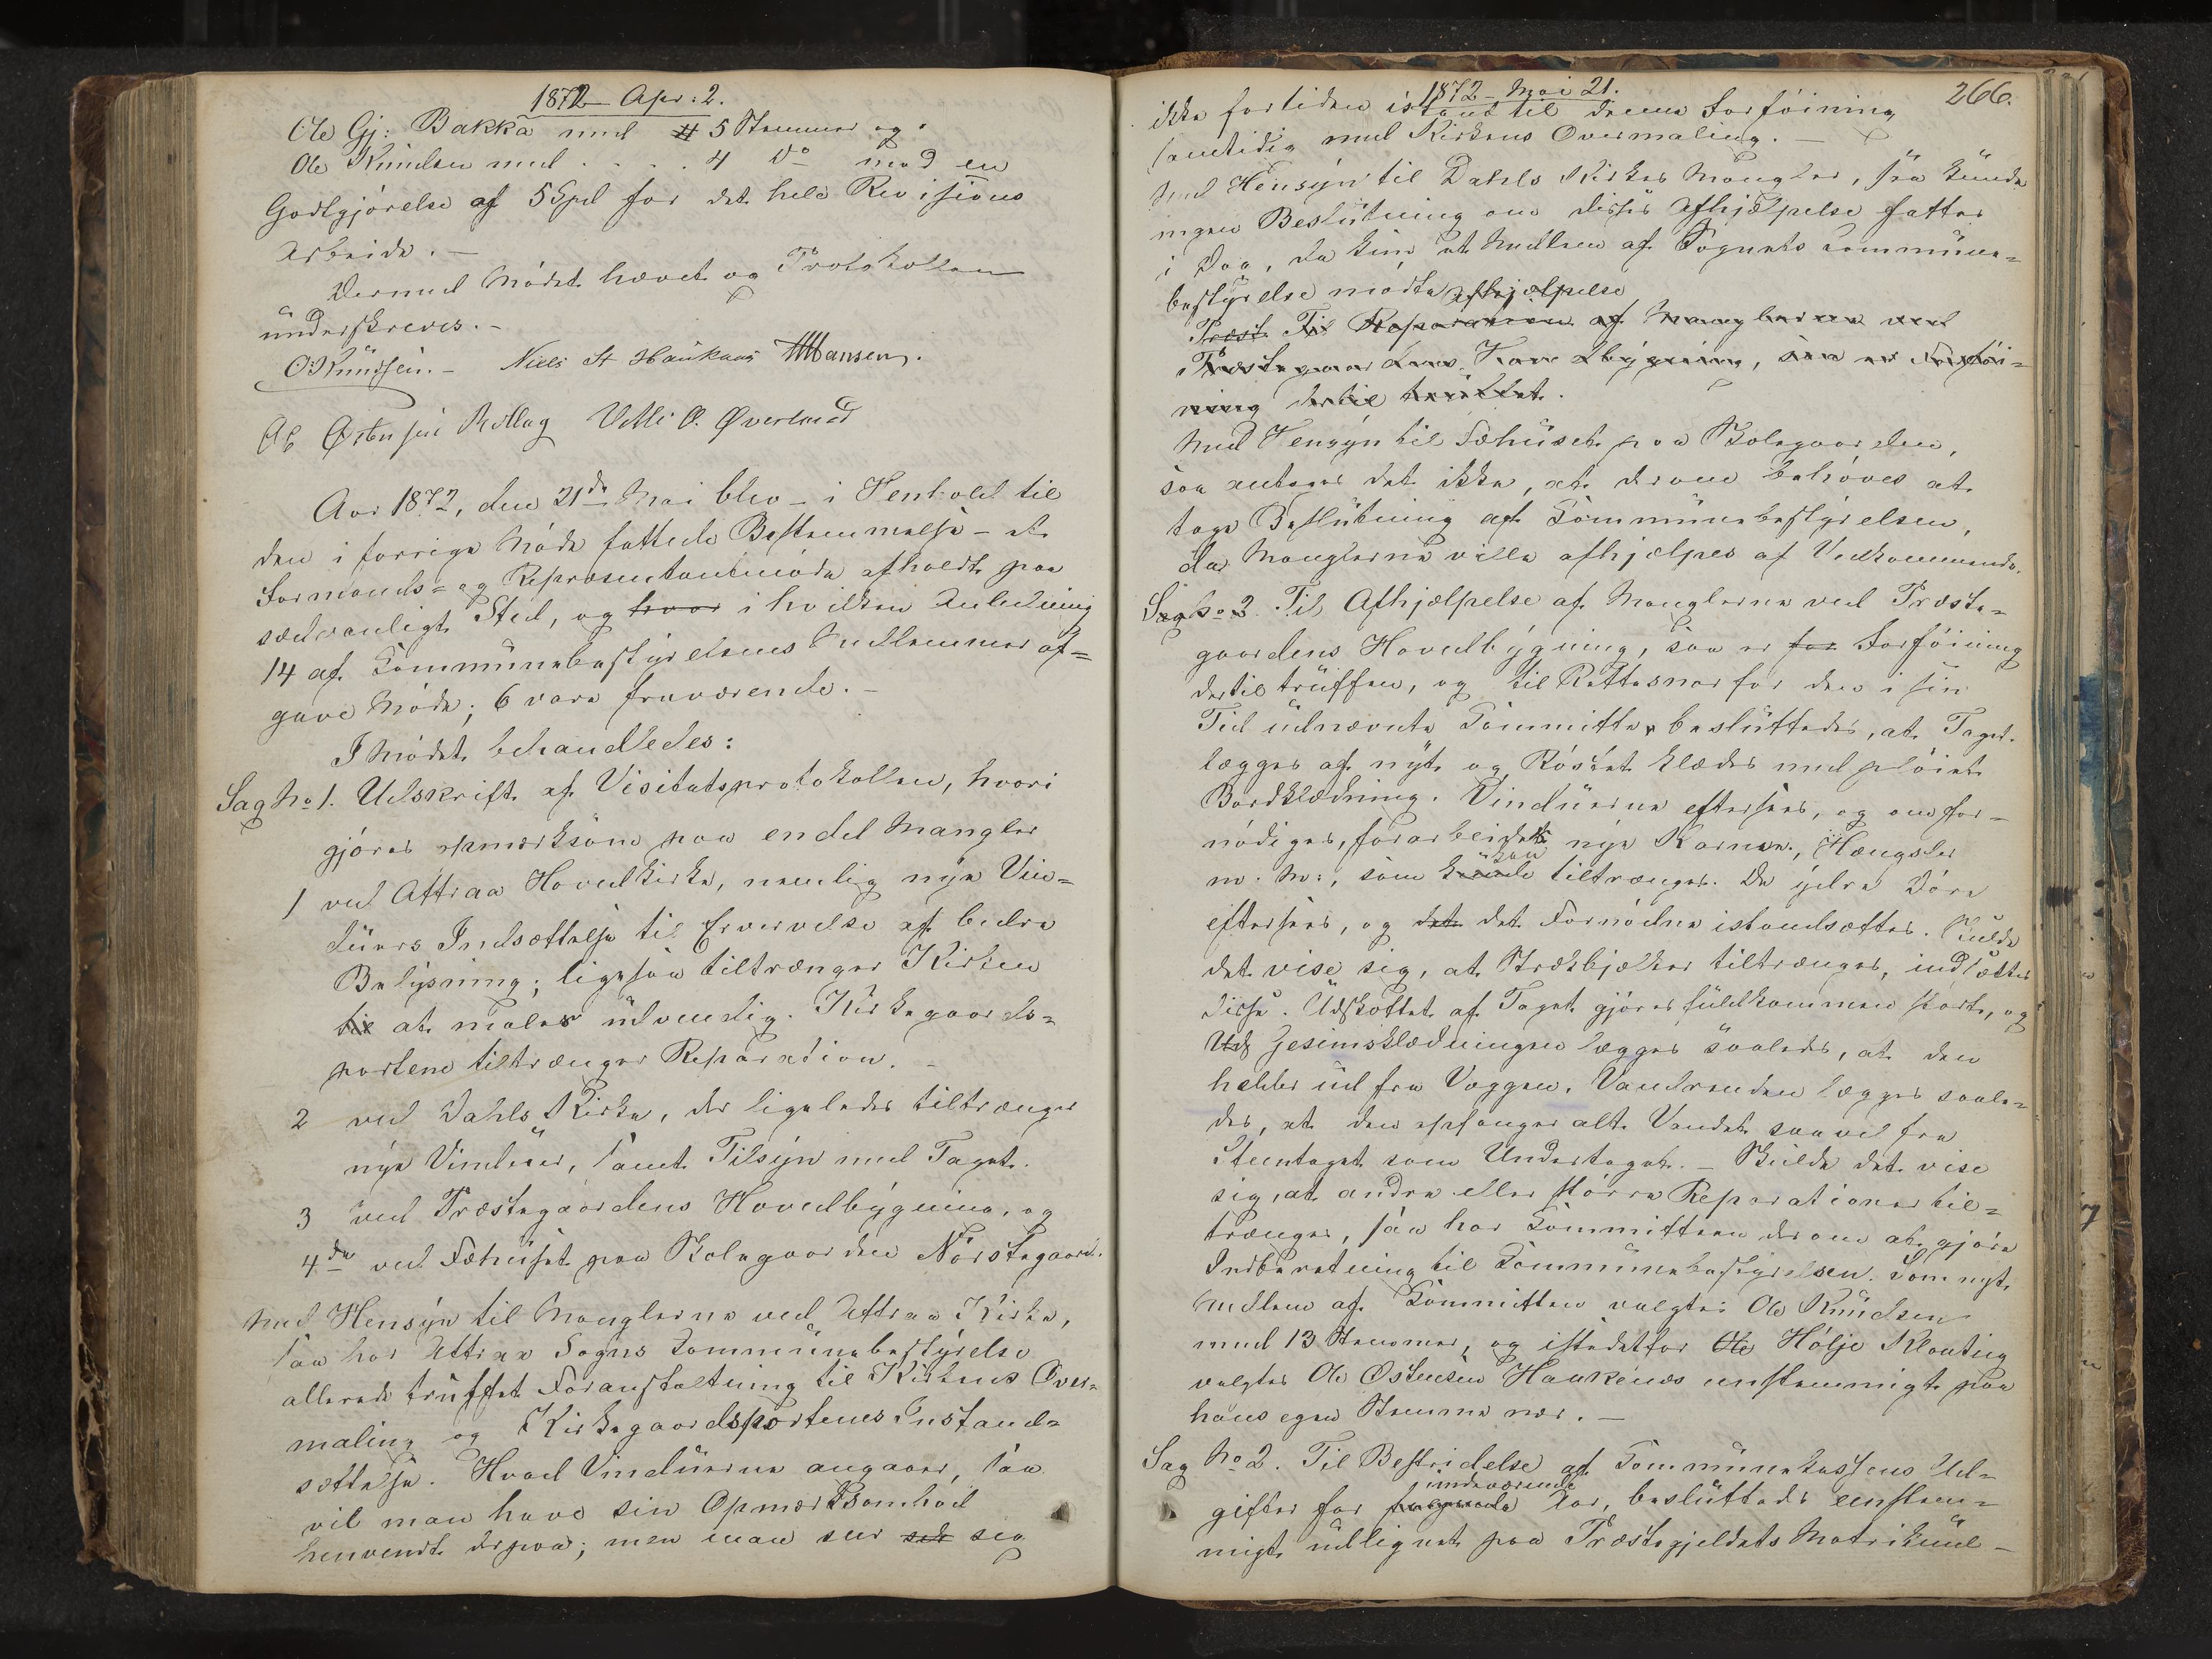 1872 - Apr: 2.
Ole Gj: Bakka med 5 Stemmer og
Ole Knudsen med . . . . 4 do med en
Godtgjørelse af 5 Spd for det hele Revisions
Arbeide. -
Dermed Mødet hævet og Protokollen
underskreves. -
O. Knudsen. - Niels St Haukaas HHansen.
Ole Østensen Rollag Vetle O. Øverland
Aar 1872, den 21de Mai blev - i Henhold til
den i forrige Møde fattede Bestemmelse - et
Formands= og Repræsentantmøde afholdt paa
sædvanligt Sted, og hvor i hvilken Anledning
14 af Communebestyrelsens Medlemmer af=
gave Møde; 6 vare fraværende. -
I Mødet behandledes:
Sag No 1. Udskrift af Visitatsprotokollen, hvori
gjøres opmærksom paa endel Mangler
1 ved Attraa Hovedkirke, nemlig nye Vin=
duers Indsættelse til Erværvelse af bedre
Belysning; ligesaa tiltrænger Kirken
til at males udvendig. Kirkegaards=
portene tiltrænger Reparation. -
2 ved Dahls Kirke, der ligeledes tiltrænger
nye Vinduer, samt Tilsyn med Taget.
3 ved Præstegaardens Hovedbygning, og
4de ved Fæhuset paa Bolegaarden Nørstegaard.
Med Hensyn til Manglerne ved Attraa Kirke,
saa har Attraa Sogns Communebestyrelse
allerede truffet Foranstaltning til Kirkens Over=
maling og Kirkegaardsportenes Istand=
sættelse. Hvad Vinduerne angaaer, saa
vil man have sin Opmærksomhed
henvendt derpaa; men man seer sig
1872 - Mai 21.
266.
ikke fortiden istand til denne Forføining
samtidig med Kirkens Overmaling. -
Med Hensyn til Dahls Kirkes Mangler, saa kunde
ingen Beslutning om disses Afhjælpelse fattes
i Dag, da kun et Medlem af Sognets Commune=
bestyrelse mødte
afhjælpelse
Præst Til Reparation af Manglerne ved
Præstegaardens Hovedbygning, saa er Forføi=
ning dertil truffet.
Med Hensyn til Fæhuset paa Bolegaarden,
saa antages det ikke, at derom behøves at
tage Beslutning af Communebestyrelsen,
da Manglerne ville afhjælpes af Vedkommende.
Sag No 3. Til Afhjælpelse af Manglerne ved Præste=
gaardens Hovedbygning, saa er for Forføining
dertil truffen, og til Rettesnor for den i sin
Tid udnævnte Committe, besluttedes, at Taget
lægges af nyt og Røstet klædes med pløiet
Bordklædning. Vinduerne eftersees, og om for=
nødiges, forarbeides nye Karme, Hængsler
m. M:, som kunde
kan
tiltrænges. De ydre Døre
eftersees, og det det Fornødne istandsættes. Skulde
det vise sig, at Strækbjælker tiltrænges, indsættes
disse. Udskottet af Taget gjøres fuldkommen stort, og
Ud Gesimsklædningen lægges saaledes, at den
helder ud fra Væggen. Vandrenden lægges saale=
des, at den opfanger alt Vandet saavel fra
Steentaget som Undertaget. - Skulde det vise
sig, at andre eller større Reparationer til=
trænges, saa har Committeen derom at gjøre
Indberetning til Communebestyrelsen. Som nyt
Medlem af Committeen valgtes Ole Knudsen
med 13 Stemmer, og istedetfor Ole Hølje Kloutien
valgtes Ole Østensen Haukaas enstemmigt paa
hans egen Stemme nær. -
Sag No 2. Til Bestridelse af Communekassens Ud=
indeværende
gifter for Aar, besluttedes eenstem=
migt udlignet paa Præstegjeldets Matrikuul-